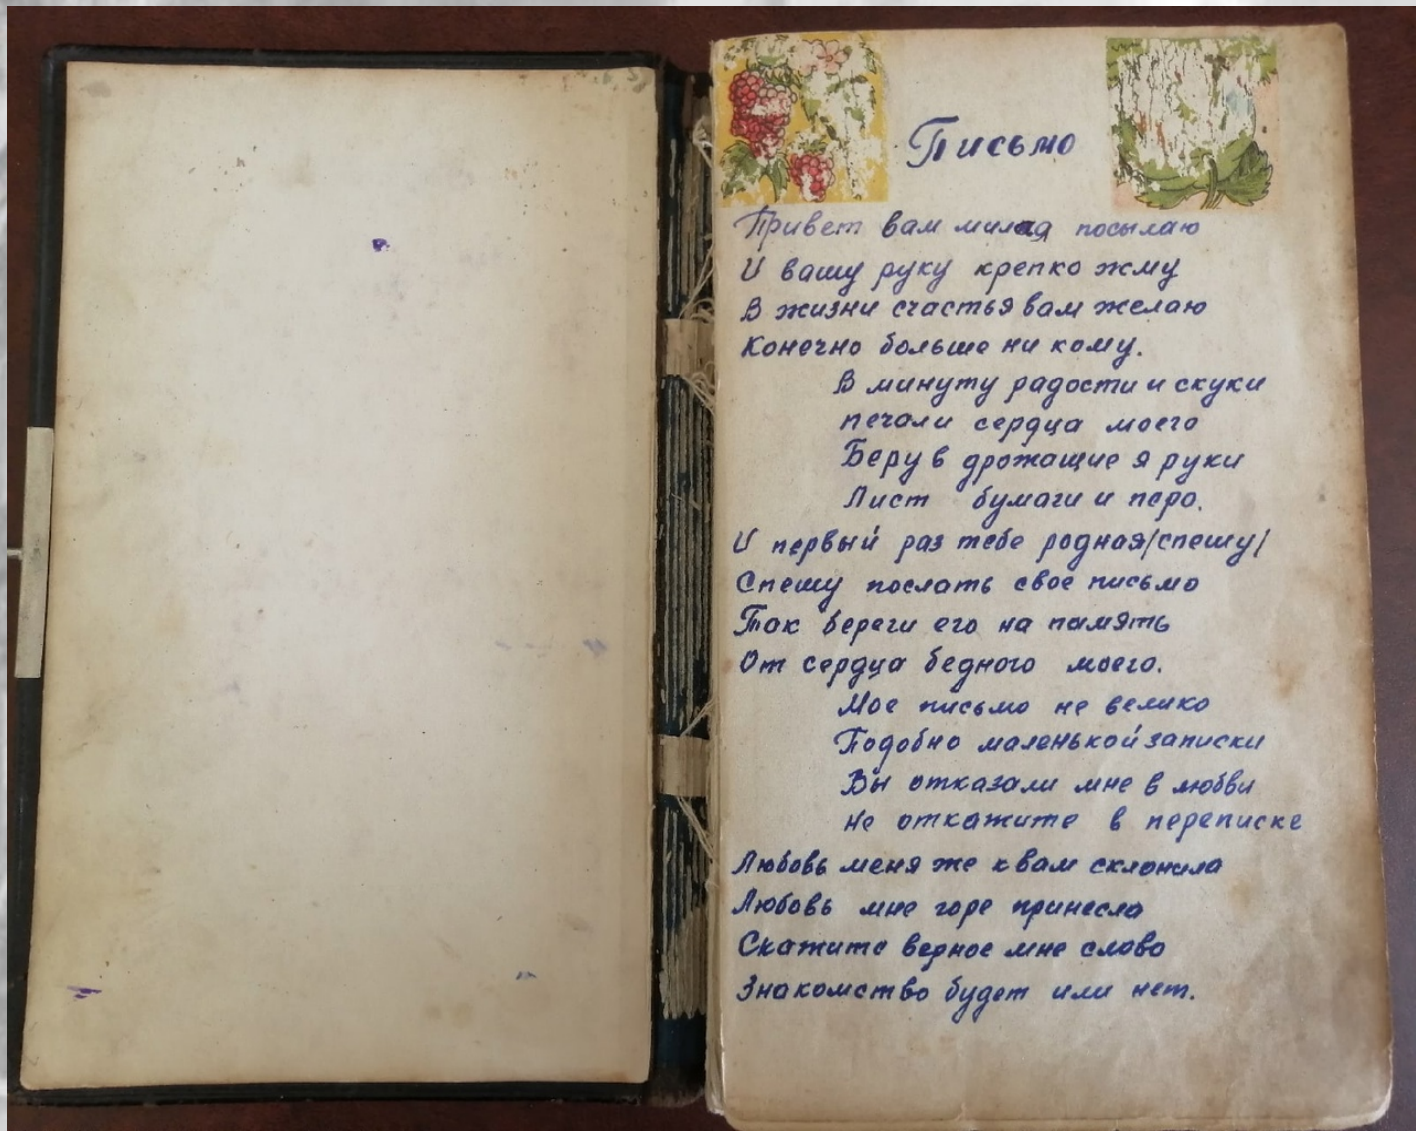 Письмо
Привет вам милая посылаю
И вашу руку крепко жму
В жизни счастья вам желаю
Конечно больше ни кому.
В минуту радости и скуки
печали сердца моего
Беру в дрожащие я руки
Лист бумаги и перо.
И первый раз тебе родная/спешу/
Спешу послать свое письмо
Так береги его на память
От сердца бедного моего.
Мое письмо не велико
Подобно маленькой записки
Вы отказали мне в любви
Не откажите в переписке
Любовь меня же к вам склонила
Любовь мне горе принесла
Скажите верное мне слово
Знакомство будет или нет.